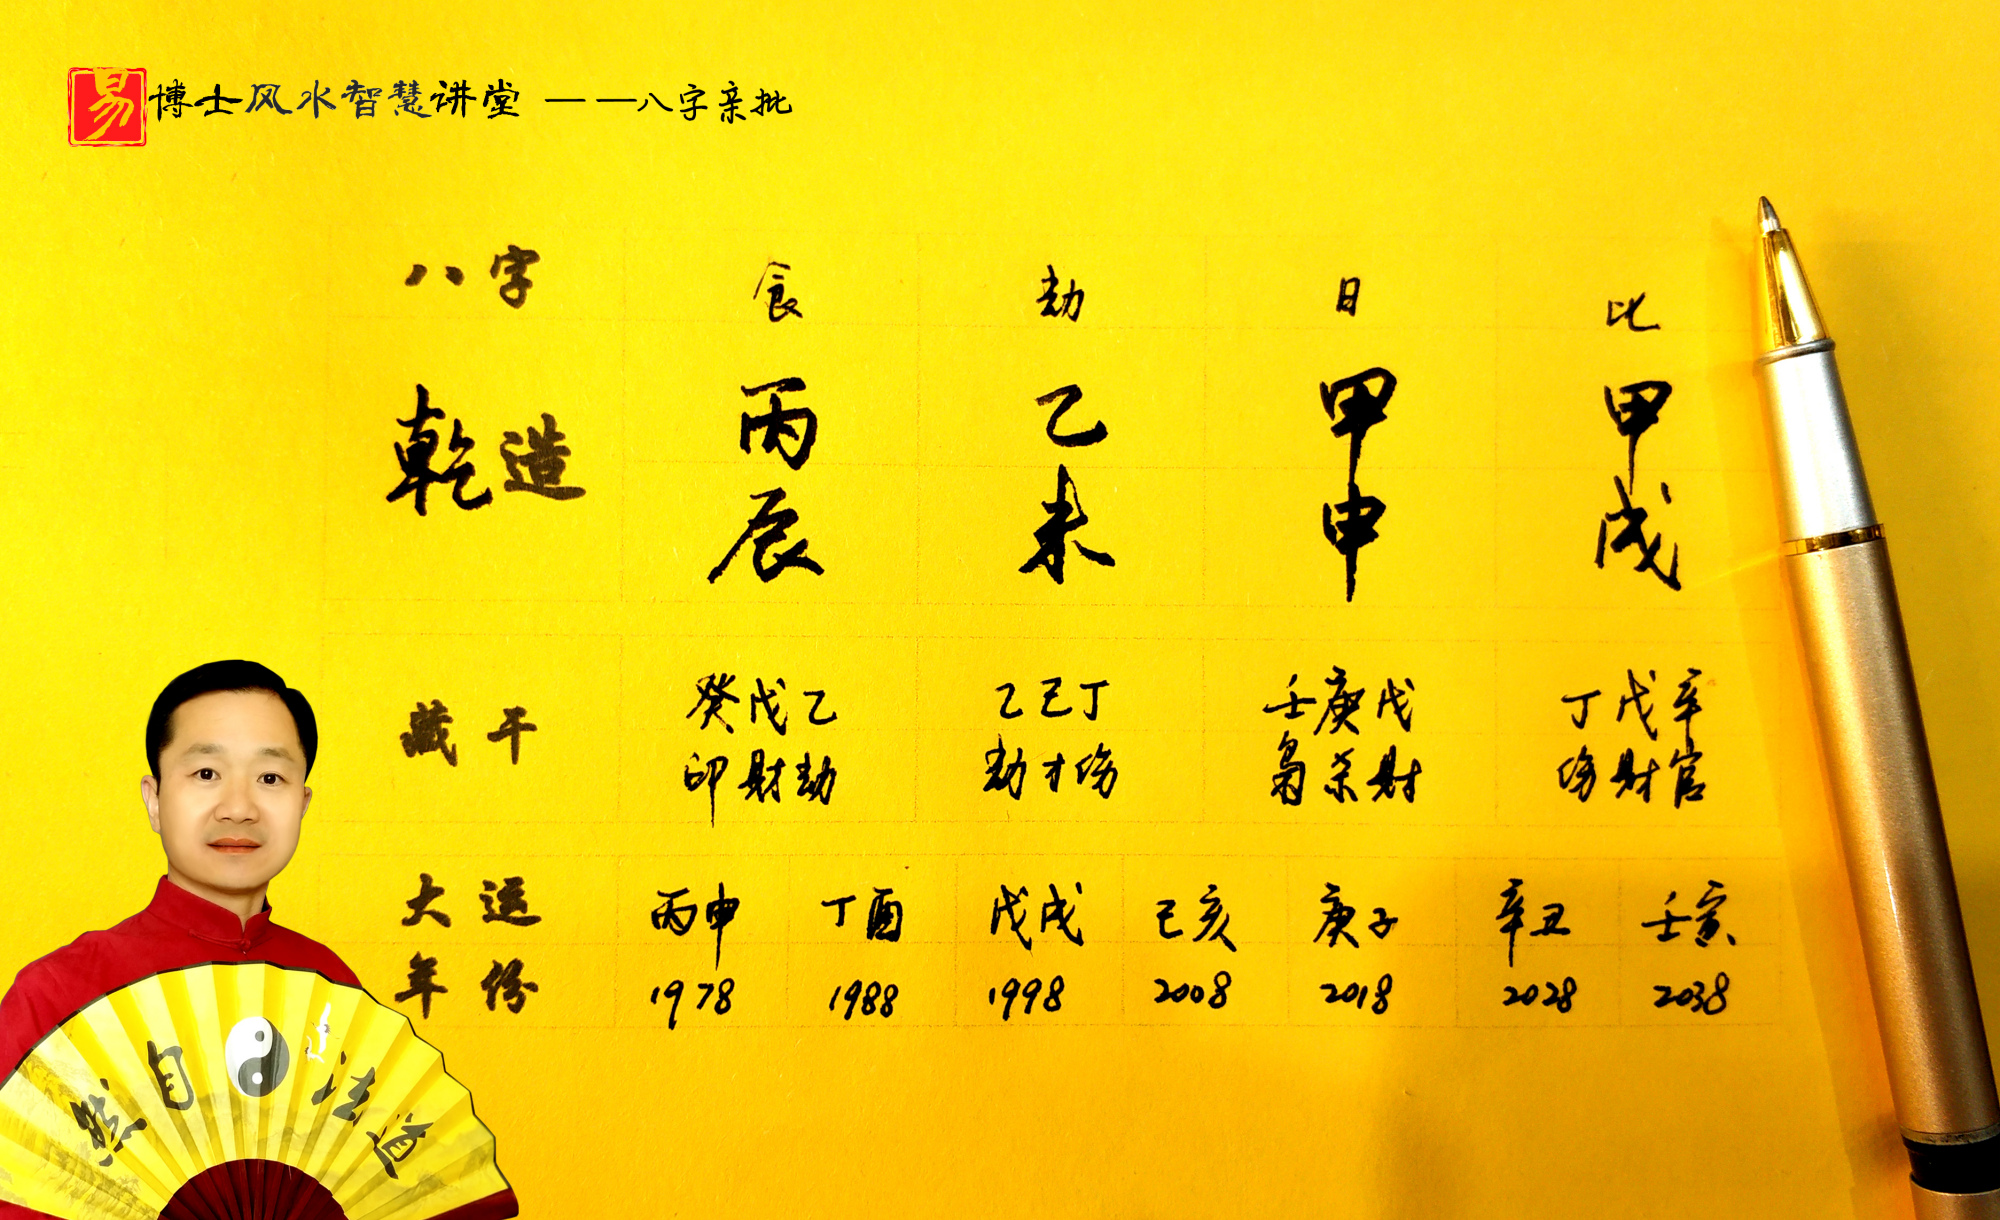 易博士风水智慧讲堂 ——八字亲批
八字 食 劫 日 比
乾造 丙 乙 甲 甲
辰 未 申 戌
藏干 癸戊乙 乙己丁 壬庚戊 丁戊辛
印财劫 劫才伤 枭杀财 伤财官
大运 丙申 丁酉 戊戌 己亥 庚子 辛丑 壬寅
年份 1978 1988 1998 2008 2018 2028 2038
道法自然